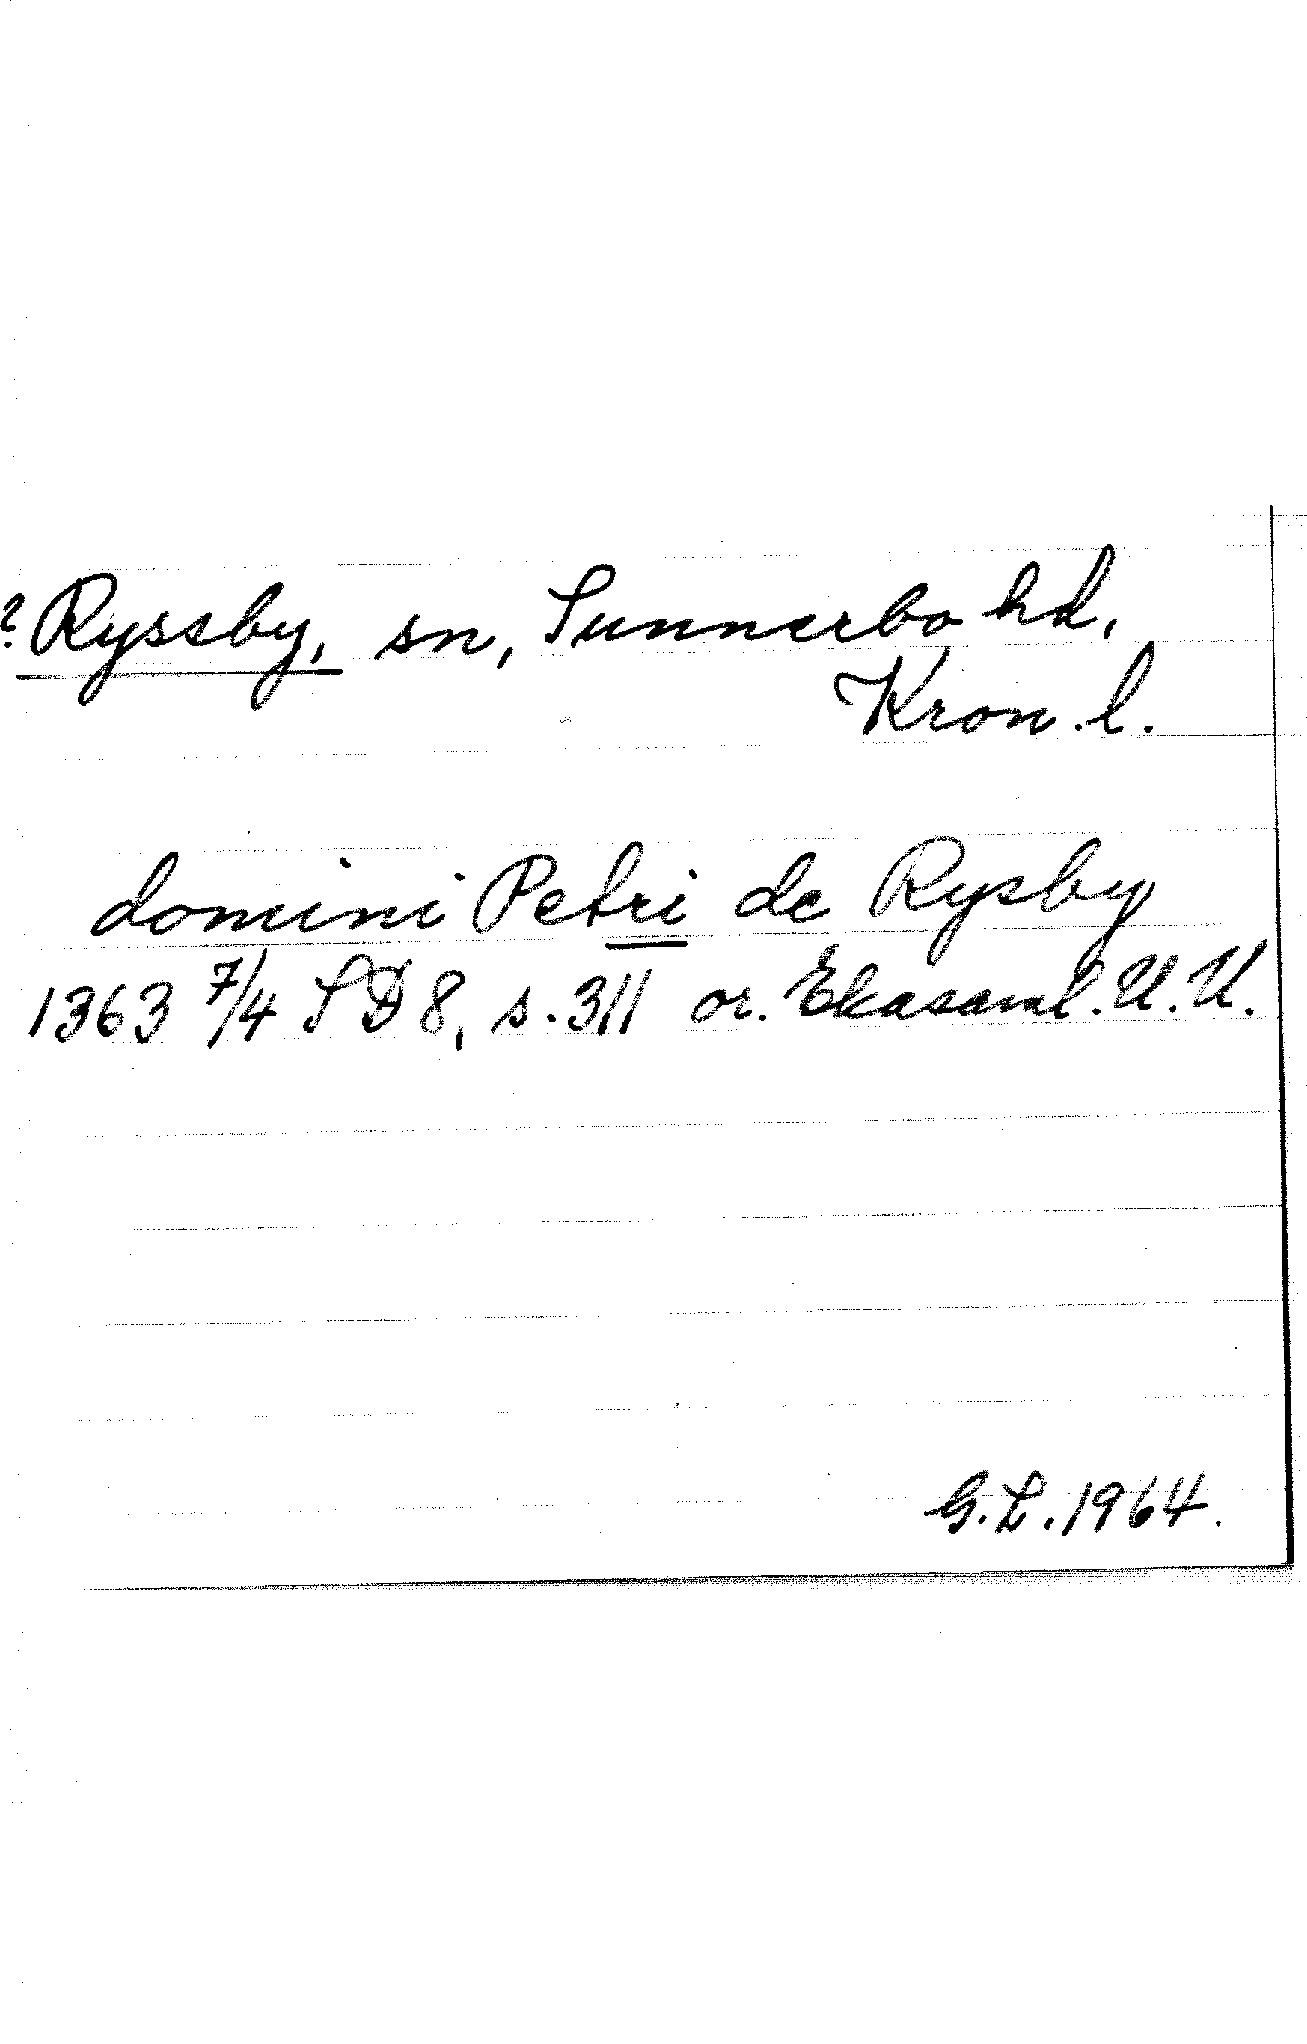 ? Ryssby, sn, Sunnerbo hd,
Kron. l.
domini Petri de Rysby
1363 7/4 SD 8, s. 311 or. Ekasaml. U. U.
G. L. 1964.